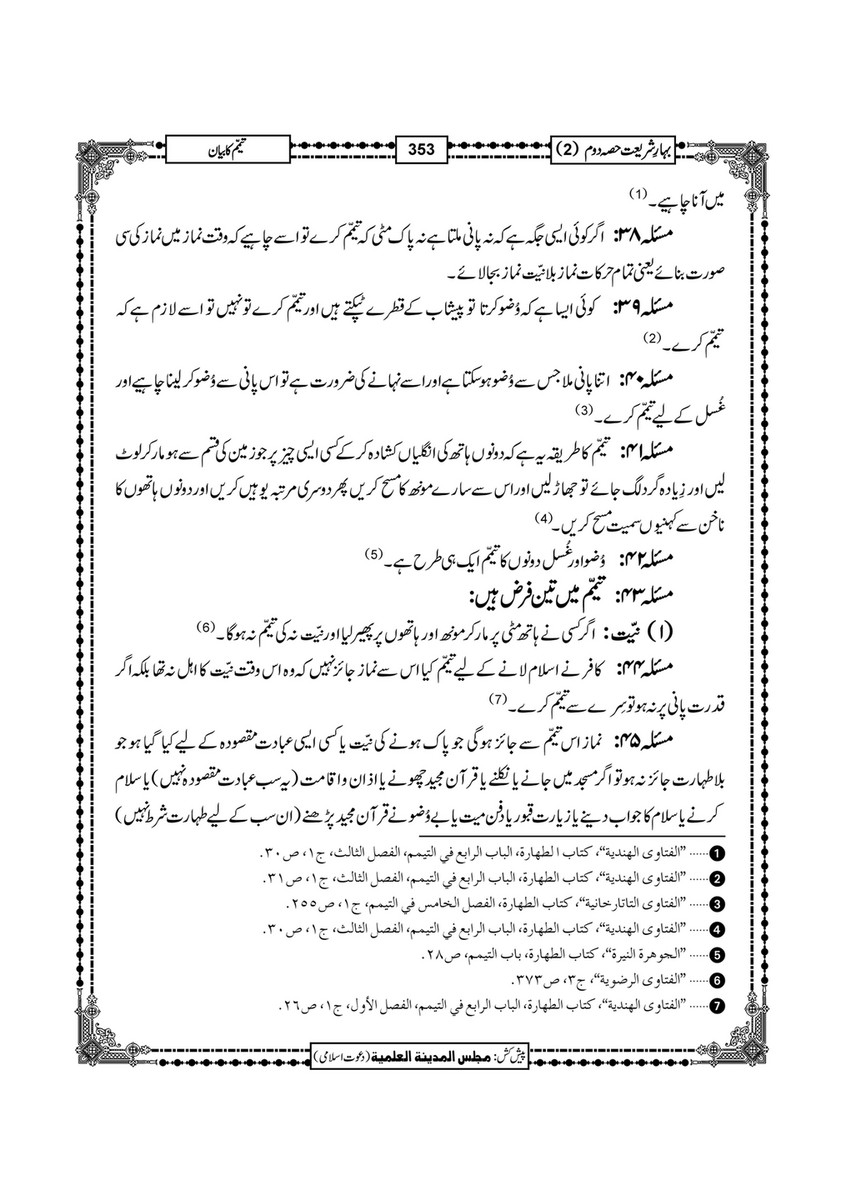 بہارِ شریعت حصہ دوم (2)
353
تیمّم کا بیان
میں آنا چاہیے۔ (1)
مسئلہ ۳۸: اگر کوئی ایسی جگہ ہے کہ نہ پانی ملتا ہے نہ پاک مٹی کہ تیمّم کرے تو اسے چاہیے کہ وقت نماز میں نماز کی سی
صورت بنائے یعنی تمام حرکات نماز بلا نیّت نماز بجا لائے۔
مسئلہ ۳۹: کوئی ایسا ہے کہ وُضو کرتا تو پیشاب کے قطرے ٹپکتے ہیں اور تیمّم کرے تو نہیں تو اسے لازم ہے کہ
تیمّم کرے۔ (2)
مسئلہ ۴۰: اتنا پانی ملا جس سے وُضو ہو سکتا ہے اور اسے نہانے کی ضرورت ہے تو اس پانی سے وُضو کر لینا چاہیے اور
غُسل کے لیے تیمّم کرے۔ (3)
مسئلہ ۴۱: تیمّم کا طریقہ یہ ہے کہ دونوں ہاتھ کی انگلیاں کشادہ کر کے کسی ایسی چیز پر جو زمین کی قسم سے ہو مار کر لوٹ
لیں اور زِیادہ گرد لگ جائے تو جھاڑ لیں اور اس سے سارے مونھ کا مسح کریں پھر دوسری مرتبہ یوہیں کریں اور دونوں ہاتھوں کا
ناخن سے کہنیوں سمیت مسح کریں۔ (4)
مسئلہ ۴۲: وُضو اور غُسل دونوں کا تیمّم ایک ہی طرح ہے۔ (5)
مسئلہ ۴۳: تیمّم میں تین فرض ہیں:
(۱) نیّت: اگر کسی نے ہاتھ مٹی پر مار کر مونھ اور ہاتھوں پر پھیر لیا اور نیّت نہ کی تیمّم نہ ہوگا۔ (6)
مسئلہ ۴۴: کافر نے اسلام لانے کے لیے تیمّم کیا اس سے نماز جائز نہیں کہ وہ اس وقت نیّت کا اہل نہ تھا بلکہ اگر
قدرت پانی پر نہ ہو تو سِرے سے تیمّم کرے۔ (7)
مسئلہ ۴۵: نماز اس تیمّم سے جائز ہوگی جو پاک ہونے کی نیّت یا کسی ایسی عبادت مقصودہ کے لیے کیا گیا ہو جو
بلا طہارت جائز نہ ہو تو اگر مسجد میں جانے یا نکلنے یا قرآن مجید چھونے یا اذان و اقامت (یہ سب عبادت مقصودہ نہیں) یا سلام
کرنے یا سلام کا جواب دینے یا زیارت قبور یا دفن میت یا بے وُضو نے قرآن مجید پڑھنے (ان سب کے لیے طہارت شرط نہیں)
1 ...... ”الفتاوی الهندية“، كتاب الطهارة، الباب الرابع في التيمم، الفصل الثالث، ج١، ص٣٠.
2 ...... ”الفتاوی الهندية“، كتاب الطهارة، الباب الرابع في التيمم، الفصل الثالث، ج١، ص٣١.
3 ...... ”الفتاوی التاتارخانية“، كتاب الطهارة، الفصل الخامس في التيمم، ج١، ص٢٥٥.
4 ...... ”الفتاوی الهندية“، كتاب الطهارة، الباب الرابع في التيمم، الفصل الثالث، ج١، ص٣٠.
5 ...... ”الجوهرة النيرة“، كتاب الطهارة، باب التيمم، ص٢٨.
6 ...... ”الفتاوی الرضوية“، ج٣، ص٣٧٣.
7 ...... ”الفتاوی الهندية“، كتاب الطهارة، الباب الرابع في التيمم، الفصل الأول، ج١، ص٢٦.
پیش کش: مجلس المدينة العلمية (دعوت اسلامی)